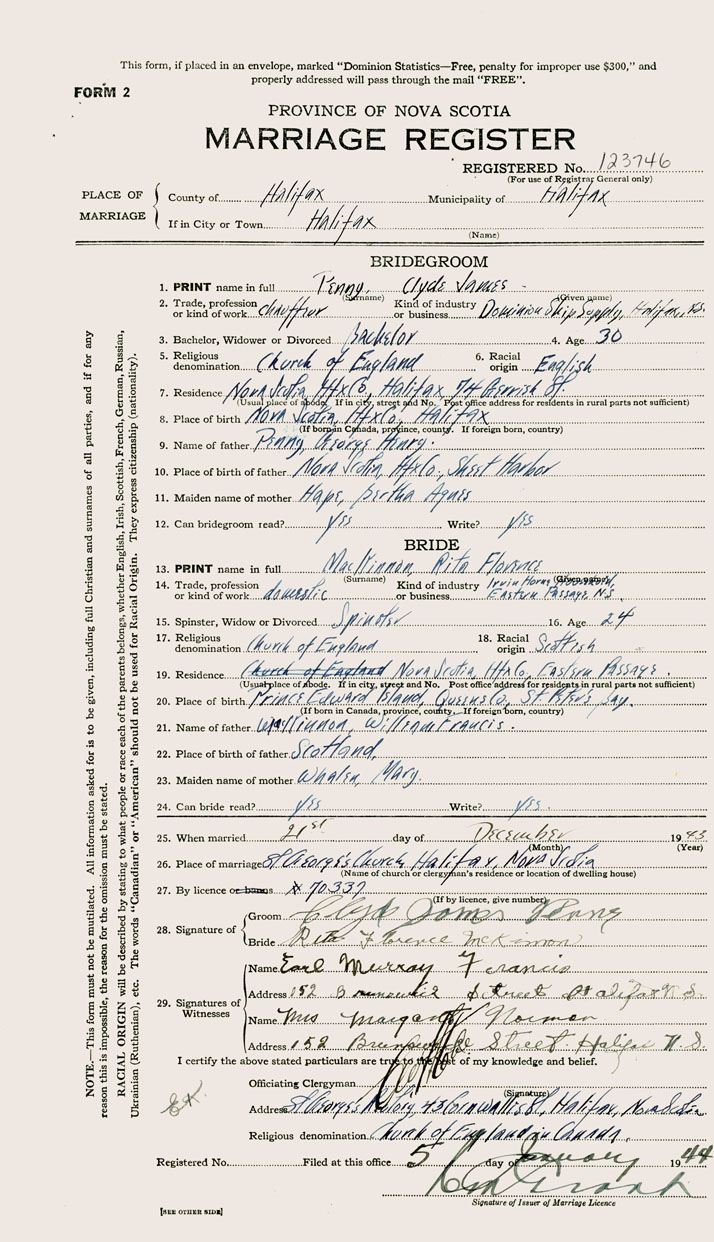 This form, if placed in an envelope, marked "Dominion Statistics—Free, penalty for improper use $300," and
properly addressed will pass through the mail "FREE".
FORM 2
PROVINCE OF NOVA SCOTIA
MARRIAGE REGISTER
REGISTERED No. 123746
(For use of Registrar General only)
PLACE OF MARRIAGE
County of Halifax Municipality of Halifax
If in City or Town Halifax
(Name)
BRIDEGROOM
1. PRINT name in full Penny, Clyde James
(Surname) (Given name)
2. Trade, profession or kind of work chauffeur Kind of industry or business Dominion Ship Supply, Halifax, N.S.
3. Bachelor, Widower or Divorced Bachelor 4. Age 30
5. Religious denomination Church of England 6. Racial origin English
7. Residence Nova Scotia, Hfx Co, Halifax 74 St
(Usual place of abode. If in city, street and No. Post office address for residents in rural parts not sufficient)
8. Place of birth Nova Scotia, Hfx Co, Halifax
(If born in Canada, province, county. If foreign born, country)
9. Name of father Penny, George Henry.
10. Place of birth of father Nova Scotia, Hfx Co., Sheet Harbor
11. Maiden name of mother Bertha Agnes
12. Can bridegroom read? yes Write? yes
BRIDE
13. PRINT name in full MacKinnon, Rita Florence
(Surname) (Given name)
14. Trade, profession or kind of work domestic Kind of industry or business Eastern Passage, N.S.
15. Spinster, Widow or Divorced Spinster 16. Age 24
17. Religious denomination Church of England 18. Racial origin Scottish
19. Residence Church of England Nova Scotia, Hfx Co, Eastern Passage.
(Usual place of abode. If in city, street and No. Post office address for residents in rural parts not sufficient)
20. Place of birth Prince Edward Island, Queens Co, St Peters Bay.
(If born in Canada, province, county. If foreign born, country)
21. Name of father William Francis.
22. Place of birth of father Scotland,
23. Maiden name of mother Whalen, Mary.
24. Can bride read? yes Write? yes.
25. When married 21st day of December 1943
(Month) (Year)
26. Place of marriage St George's Church, Halifax, Nova Scotia
(Name of church or clergyman's residence or location of dwelling house)
27. By licence or banns 70337
(If by licence, give number)
28. Signature of
Groom Clyde James Penny
Bride Rita Florence McKinnon
29. Signatures of Witnesses
Name Earl Murray Francis
Address 152 Brunswick Street Halifax N.S.
Name Mrs Margaret Norman
Address 152 Brunswick Street Halifax N.S.
I certify the above stated particulars are true to the best of my knowledge and belief.
Officiating Clergyman
(Signature)
Address St George's Rectory, 43 Cornwallis St, Halifax, Nova Scotia
Religious denomination Church of England in Canada.
Registered No. Filed at this office 5 day of January 1944
Signature of Issuer of Marriage Licence
[SEE OTHER SIDE]
NOTE.—This form must not be mutilated. All information asked for is to be given, including full Christian and surnames of all parties, and if for any
reason this is impossible, the reason for the omission must be stated.
RACIAL ORIGIN will be described by stating to what people or race each of the parents belongs, whether English, Irish, Scottish, French, German, Russian,
Ukrainian (Ruthenian), etc. The words "Canadian" or "American" should not be used for Racial Origin. They express citizenship (nationality).